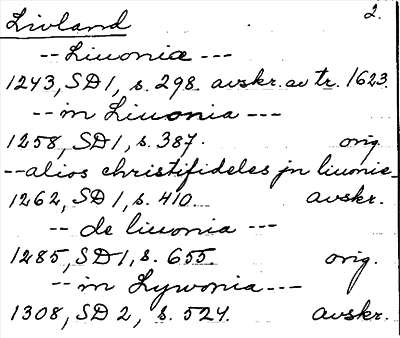 Livland 2.
-- Liuoniæ ---
1243, SD1, s. 298. avskr. av tr. 1623.
-- in Liuonia ---
1258, SD1, s. 387. orig.
-- alios christifideles jn liuonie_
1262, SD1, s. 410. avskr.
-- de liuonia ---
1285, SD1, s. 655. orig.
-- in Lywonia ---
1308, SD2, s. 524. avskr.